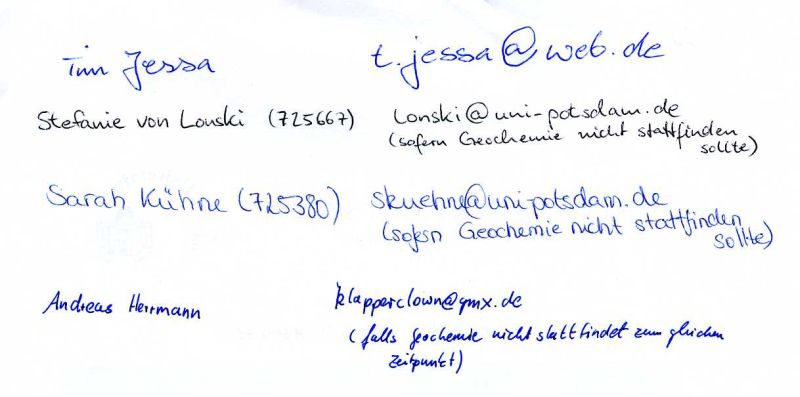 Tim Jessa t.jessa@web.de
Stefanie von Lonski (725667) lonski@uni-potsdam.de
(sofern Geochemie nicht stattfinden
sollte)
Sarah Kühne (725380) skuehne@uni-potsdam.de
(sofern Geochemie nicht stattfinden
sollte)
Andreas Herrmann klapperclown@gmx.de
(falls Geochemie nicht stattfindet zum gleichen
Zeitpunkt)